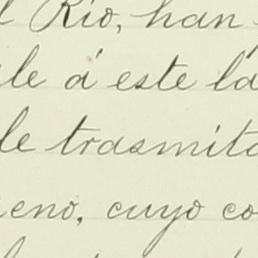 l Rio, han
le á este la
le trasmita
eno, cuyo co